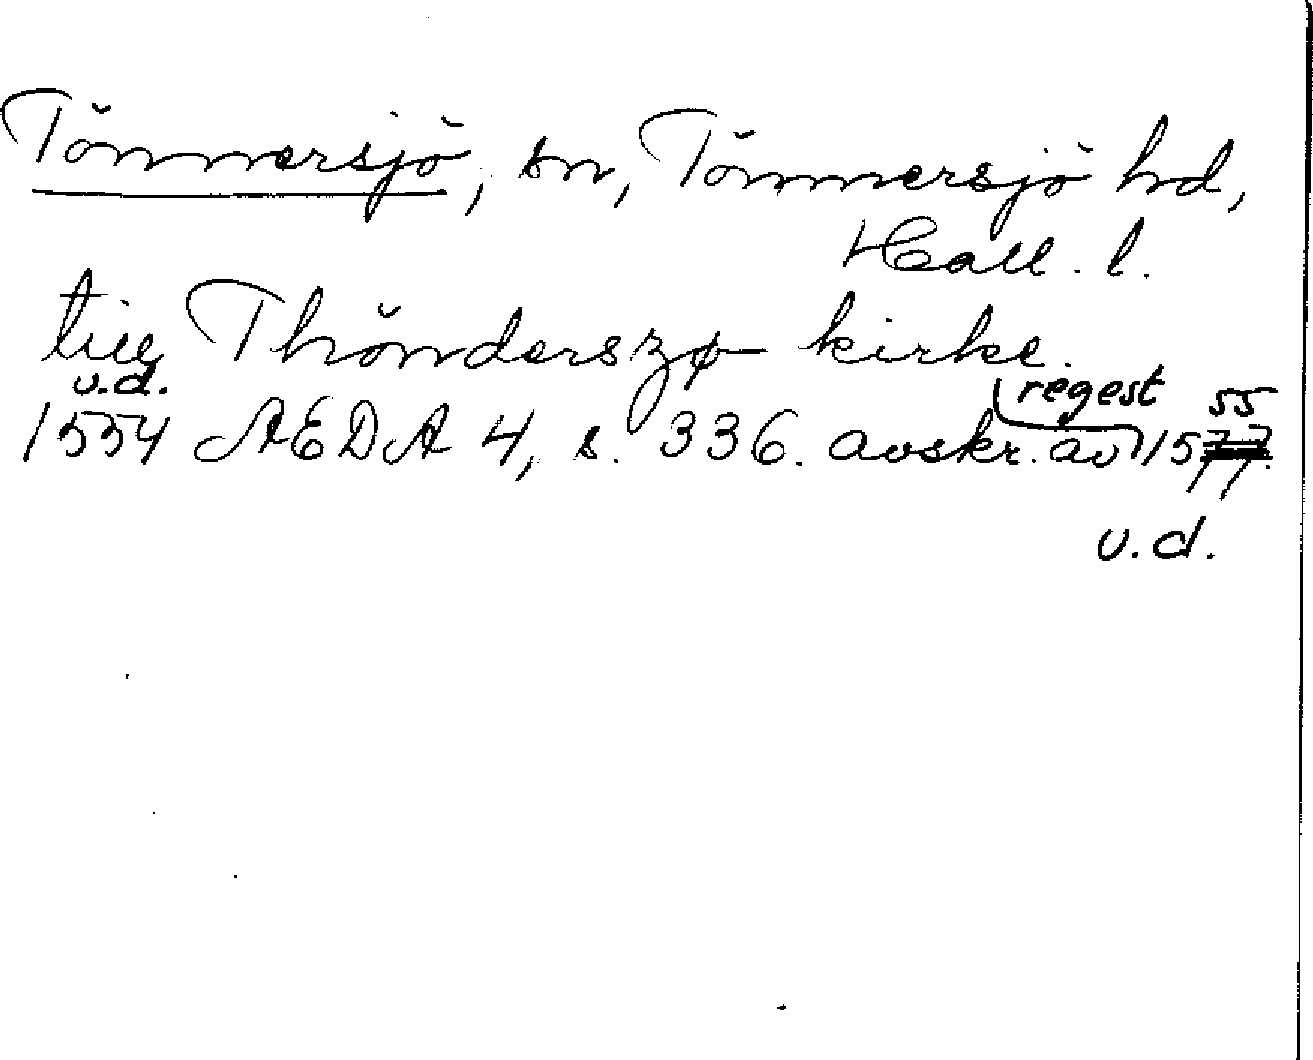 Tönnersjö, sn, Tönnersjö hd,
Hall. l.
till Thönderszø kirke.
u.d.
regest 55
1554 AEDA 4, s. 336. avskr. av 1577.
u.d.